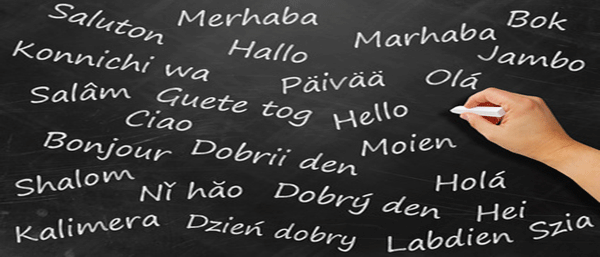 Saluton
Merhaba
Bok
Konnichi wa
Hallo
Marhaba
Jambo
Salâm
Guete tog
Päivää
Olá
Ciao
Hello
Bonjour
Dobrii den
Moien
Shalom
Nǐ hǎo
Dobrý den
Holá
Kalimera
Dzień dobry
Labdien
Hei
Szia